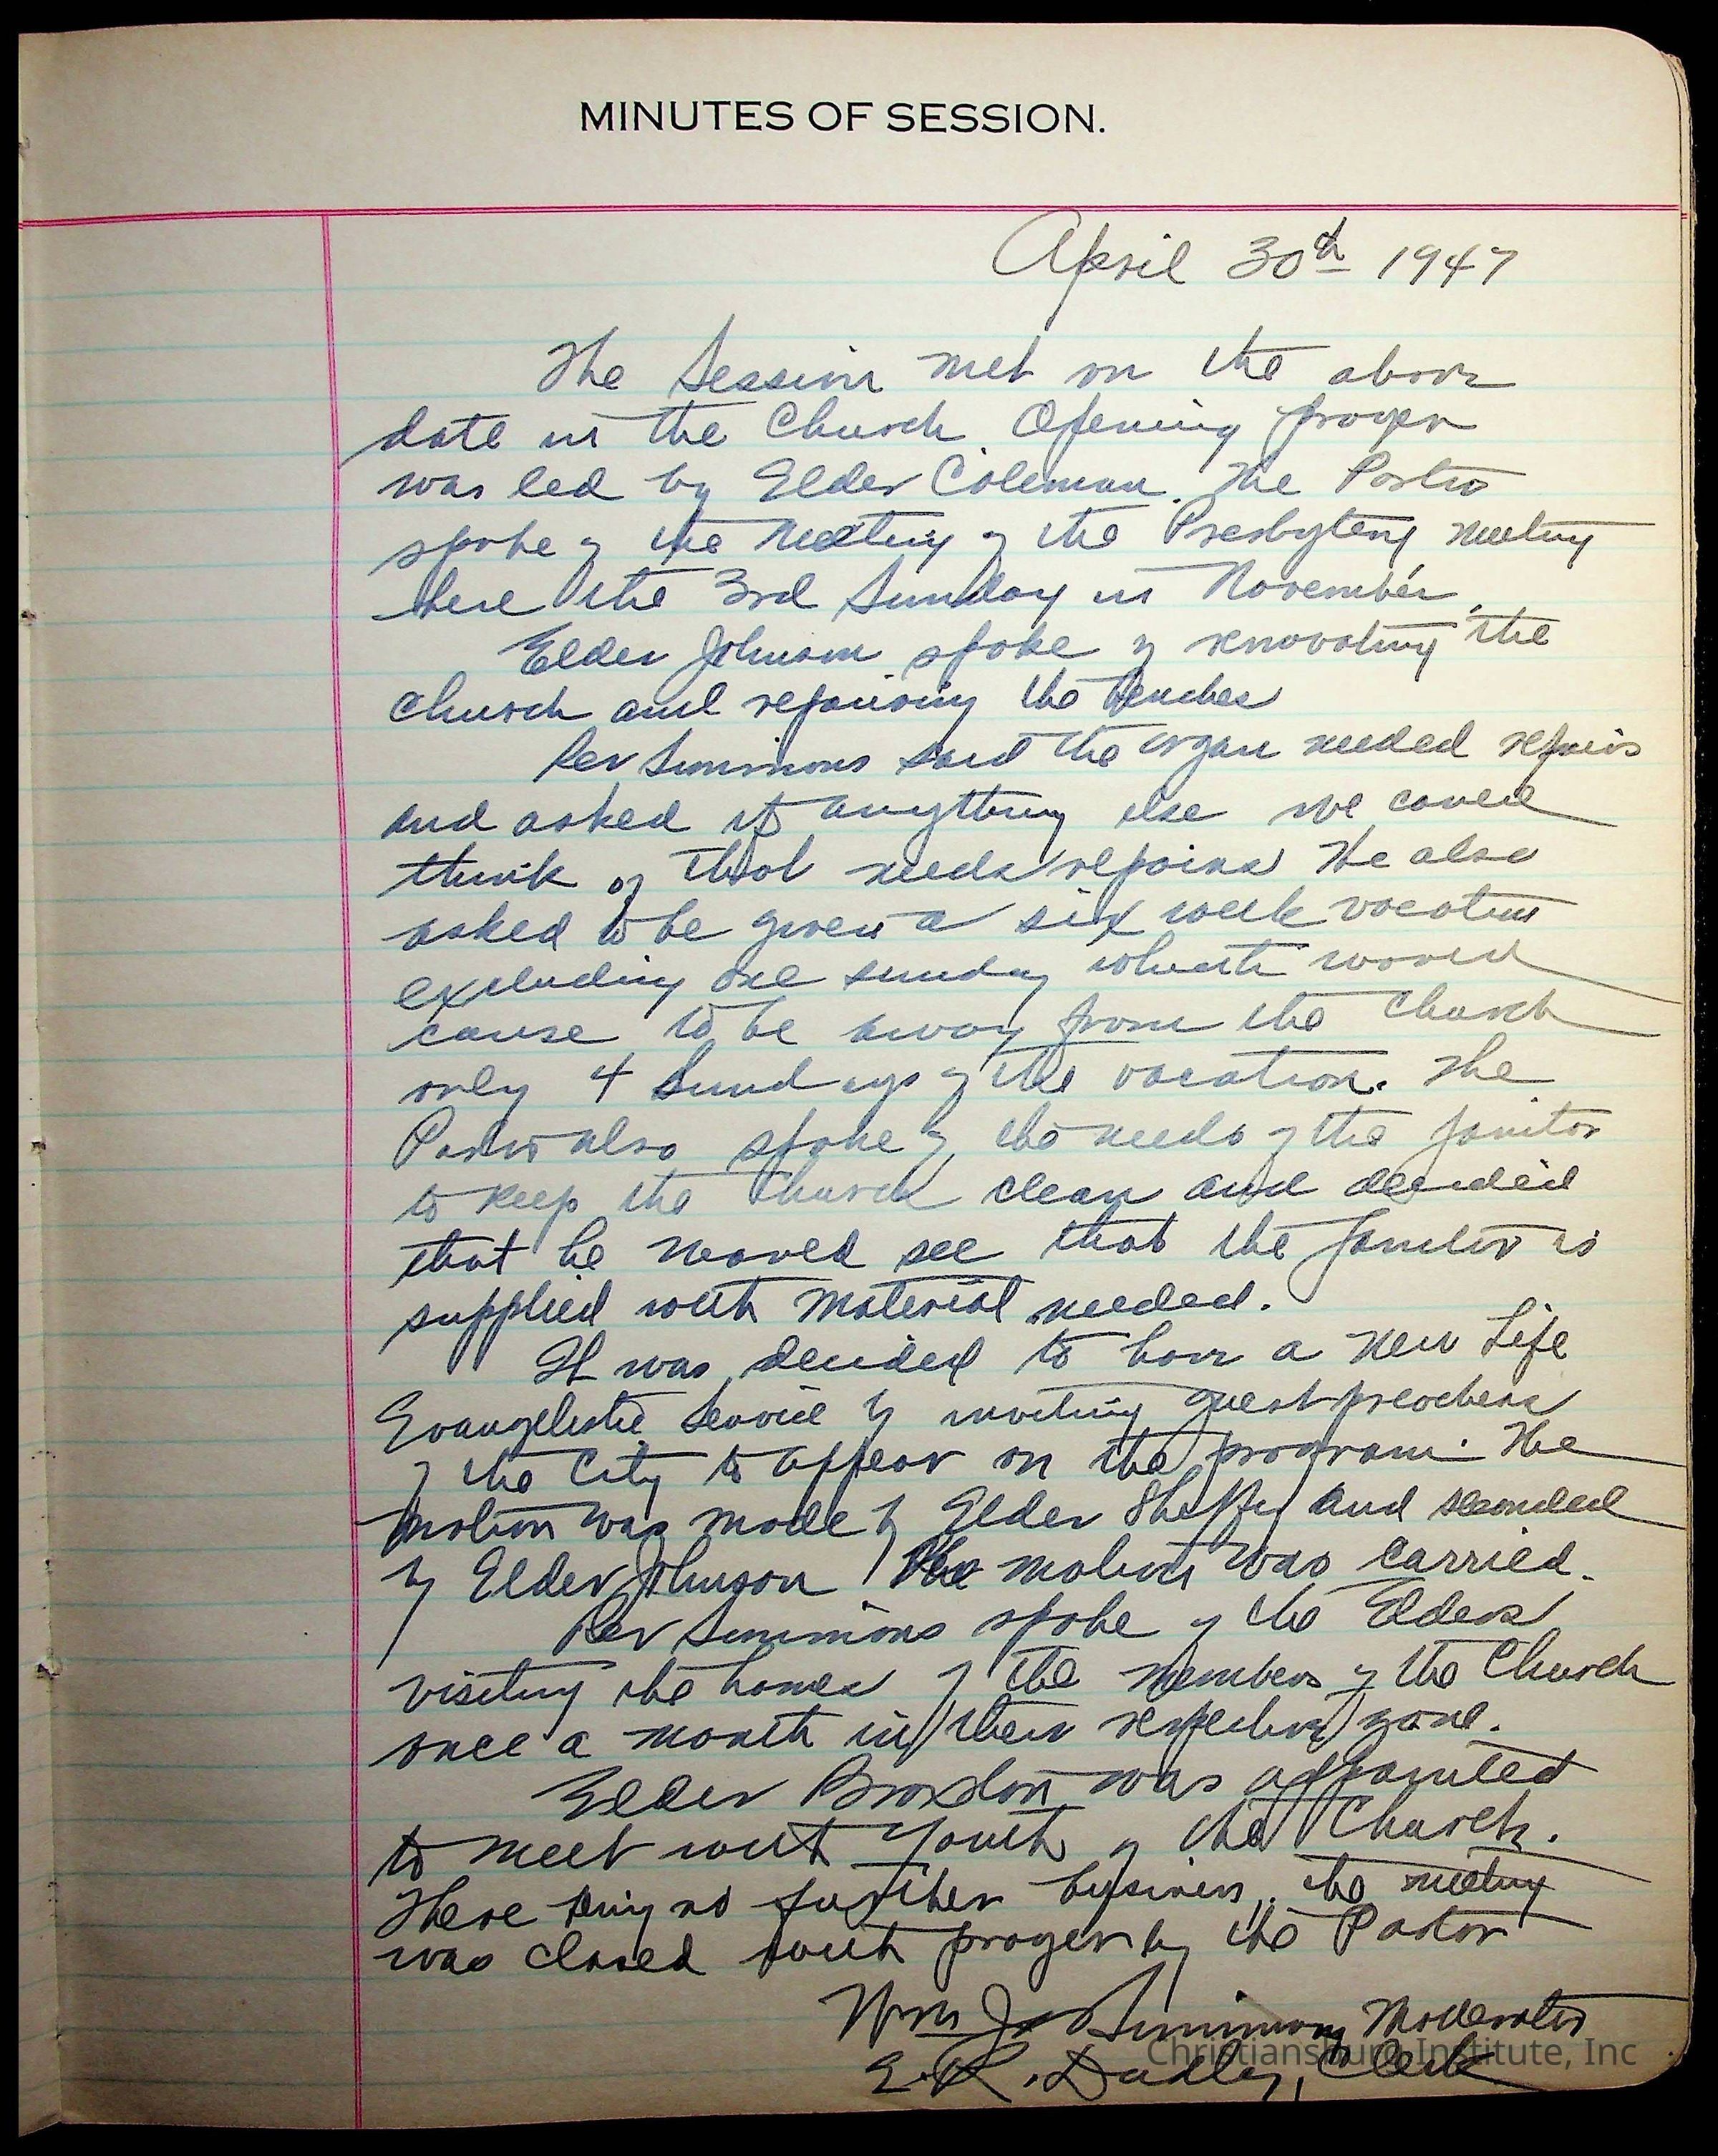 MINUTES OF SESSION.
April 30th 1947
The Session met on the above
date in the Church. Opening prayer
was led by Elder Coleman. The Pastor
spoke of the meeting of the Presbytery meeting
here the 3rd Sunday in November.
Elder Johnson spoke of renovating the
church and repairing the benches
Rev Simmons said the organ needed repairs
and asked if anything else we could
think of that needs repairs He also
asked to be given a six week vacation
excluding one sunday which would
cause to be away from the Church
only 4 Sundays of the vacation. The
Pastor also spoke of the needs of the janitor
to keep the Church clean and decided
that he would see that the janitor is
supplied with material needed.
It was decided to have a New Life
Evangelistic Service by inviting guest preachers
of the City to appear on the program. The
motion was made by Elder Sheffey and seconded
by Elder Johnson The motion was carried.
Rev Simmons spoke of the Elders
visiting the homes of the members of the Church
once a month in their respective zone.
Elder Braxton was appointed
to meet with Youth of the Church.
There being no further business, the meeting
was closed with prayer by the Pastor
Wm J. Simmons, Moderator
E. R. Dudley, Clerk
Christiansburg Institute, Inc